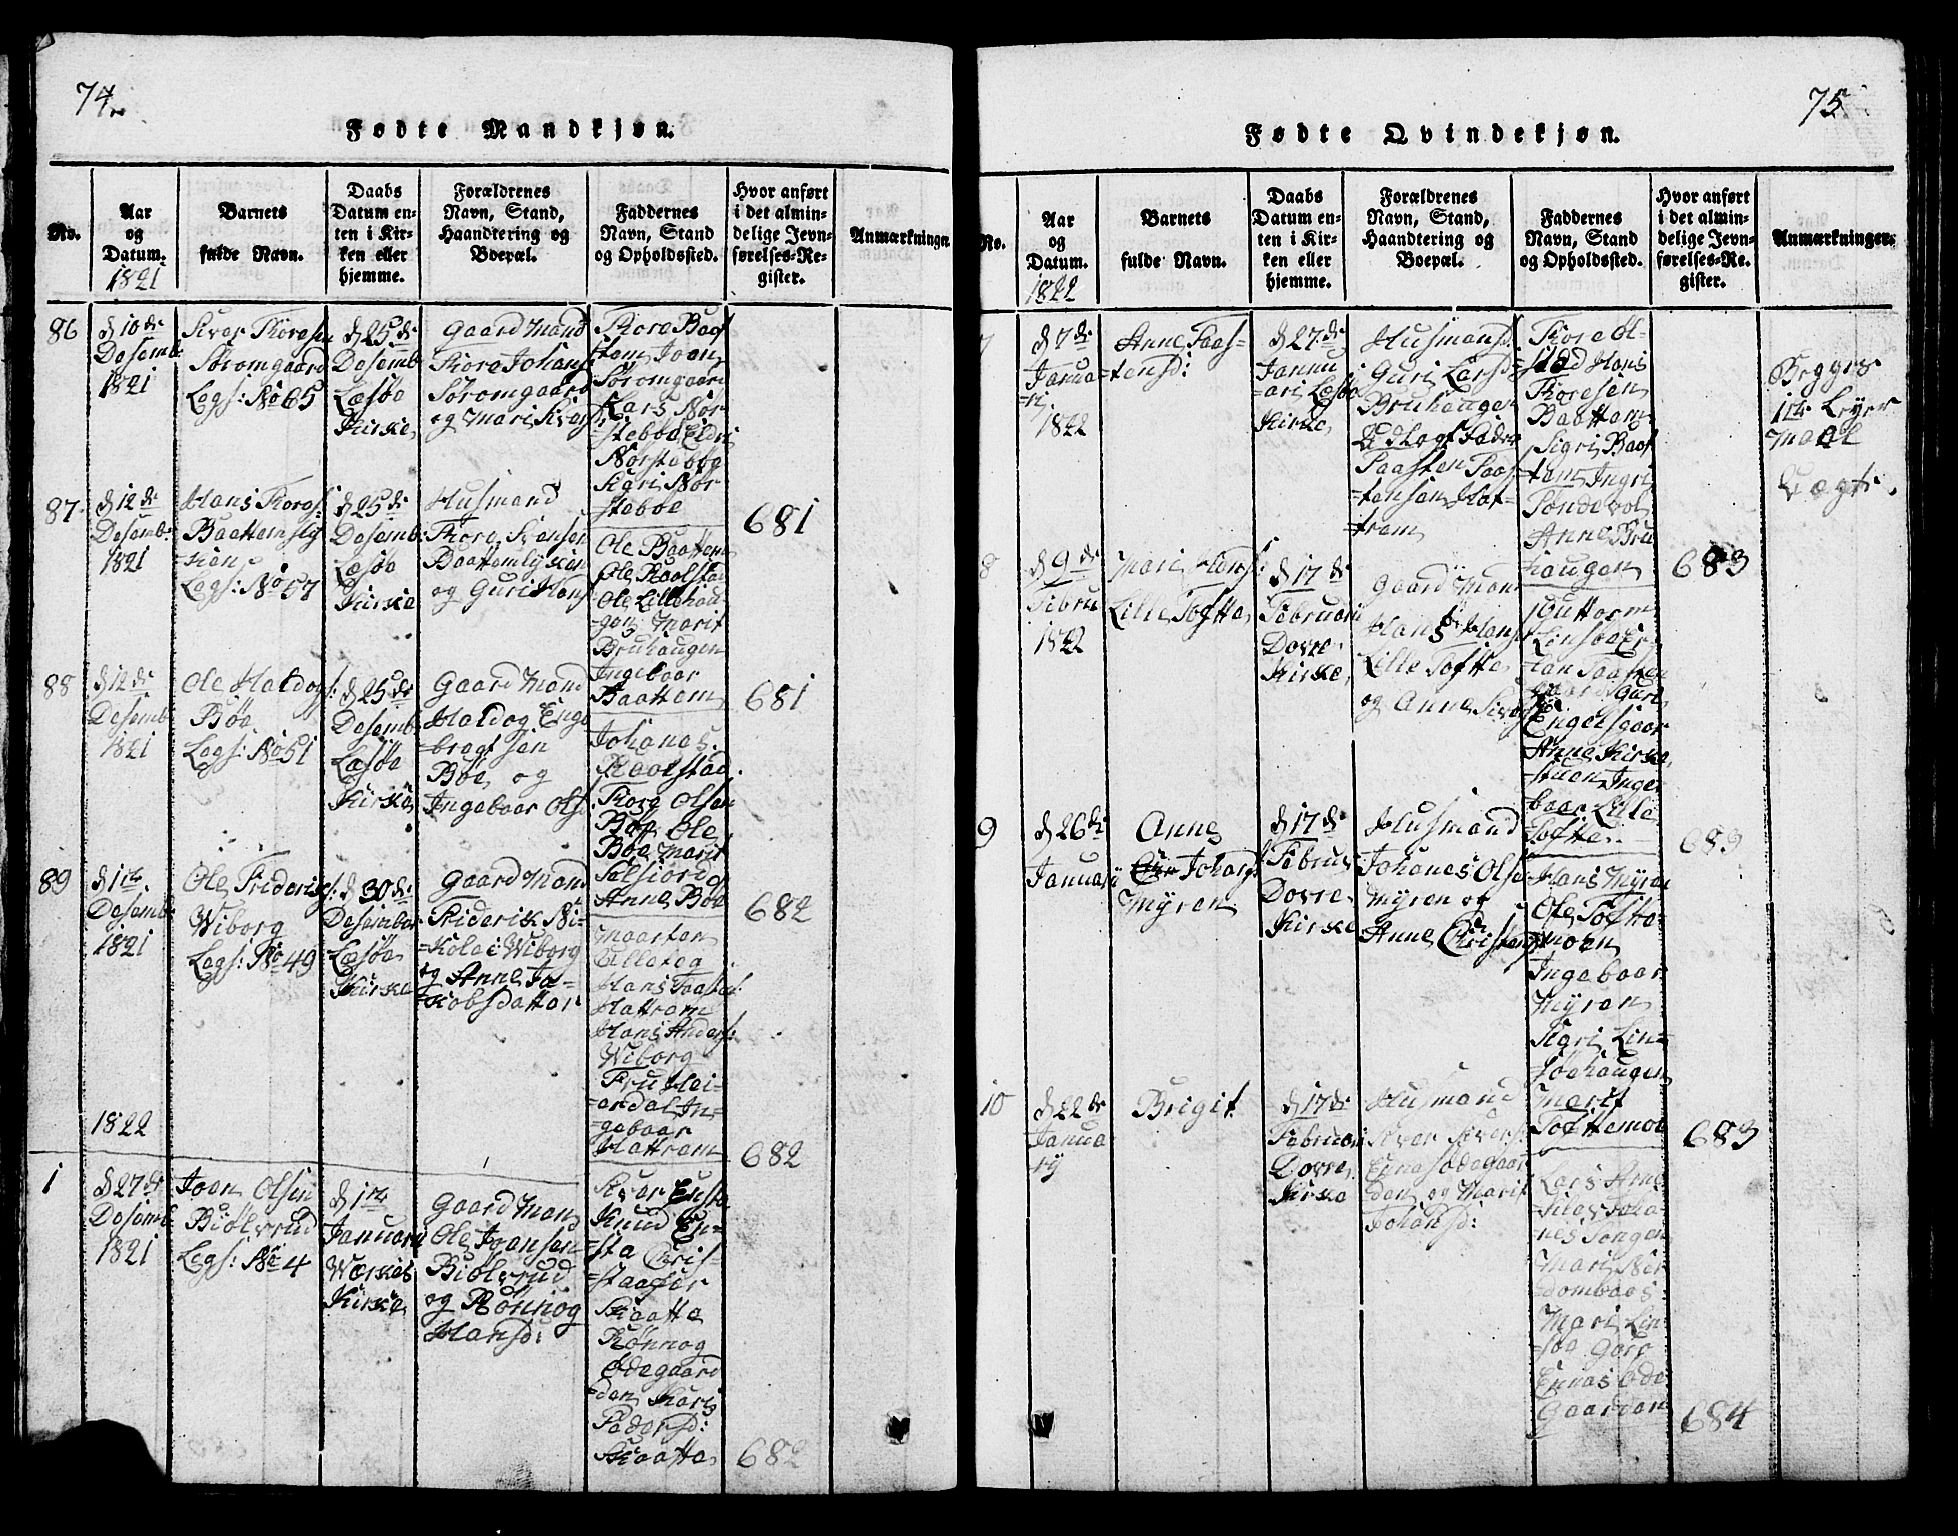 74
Fødte Mandkjøn.
No.
Aar
og
Datum.
1821
Barnets
fulde Navn.
Daabs
Datum en-
ten i Kir-
ken eller
hjemme.
Forældrenes
Navn, Stand,
Haandtering og
Boepæl.
Faddernes
Navn, Stand
og Opholdssted.
Hvor anført
i det almin-
delige Jevn-
førelses-Re-
gister.
Anmærkninger
86
d 10de
Desemb:
1821
Siver Thoresen
Søromgaard
Legs: No 65
d 25de
Desemb
Læsöe
Kirke
Gaard Mand
Thore Johans
Söromgaard
og Mari Siversd
Thore Baat
stem Joen
Söromgaard
Lars Nör
steböe Eldri
Norstebøe
Sigri Nör
steböe
87
d 12de
Desemb:
1821
Hans Thores:
Baattemsly
=kien
Legs: No 57
d 25de
Desemb:
Læsöe
Kirke
Husmand
Thore Svensen
Baattemlykien
og Guri Hans
Ole Baattem
Ole Raalstad
Ole Lillehau
=gen Marit
Bruhaugen
Ingebaar
Baattem
681
88
d 12de
Desemb
1821
Ole Haldogs:
Böe
Legs: No 51
d 25de
Desemb
Læsöe
Kirke
Gaard Mand
Haldog Enge
=bregtsen
Böe og
Ingebaar Olsd
Johanes
Raalstad
Thore Olsen
Böe Ole
Böe Marit
Anne Böe
681
89
d 1te
Desemb:
1821
Ole Friderichs:
Wiborg
Legs: No 49
d 30de
Desember
Læsöe
Kirke
Gaard Mand
Friderik Ni-
=kolai Wiborg
og Anne Ja-
=kobsdatter
Maarten
Lilleteg
Hans Paasten
Hattrem
Hans Anders:
Wiborg
Fru Hei-
Ingebaar
Hattrem
682
1822
682
1
d 27de
Desemb
1821
Joen Olsen
Biölvrud
Legs: No 4
d 1te
Januari
Værkes
Kirke
Gaard Man
Ole Joensen
Biölvrud
og Rönnog
Hansd:
Siver Ensta
Knud En-
=sta Chris-
=staafer
Skaatte
Rönnog
Ødegaard
=den Kari
Pedersd:
Skaatte
682
75
Fødte Qvindekjøn.
No.
Aar
og
Datum.
1822
Barnets
fulde Navn.
Daabs
Datum en-
ten i Kir-
ken eller
hjemme.
Forældrenes
Navn, Stand,
Haandtering og
Boepæl.
Faddernes
Navn, Stand
og Opholdssted.
Hvor anført
i det almin-
delige Jevn-
førelses-Re-
gister.
Anmærkninger.
7
d 7de
Janua
=ri
1822
Anne Paas-
=tensd:
d 27de
Janu
=ari Læsöe
Kirke
Husmands
Guri Larsd
Bruhaugen
Paasten Paas
=tensen Hat-
=trem
Thore Øl-
=stad Hans
Thoresen
Baattem
Sigri Baat
=tem Ingri
Anne Bru
haugen
683
Begges
1te Leyer
maal
8
d 9de
Febru
1822
Mari Hans:
Lille Tofte
d 17de
Februari
Dovre
Kirke
Gaard Man
Hans Hans
Lille Tofte
og Anne Sivers
Guttorm
Linsöe
Anne Kirke
=stuen Inge
baar Lille
Tofte
683
9
d 26de
Januari
Anne
Johansd
Myren
d 17de
Februa
Dovre
Kirke
Husmand
Johanes Olse
Myren og
Anne Christens
Hans Myren
Ole Tofte
moen
Ingebaar
Myren
Sigri Lin-
söehaugen
Marit
Toftemoe
683
10
d 22de
Janua
ry
Brigit
d 17de
Februari
Dovre
Kirke
Husmand
Siver Sivers:
Ennasødegaar
den og Marit
Johansd:
Mari Nör
dombaas
Mari Lin
=söe
Ennas Øde
Gaarden
684